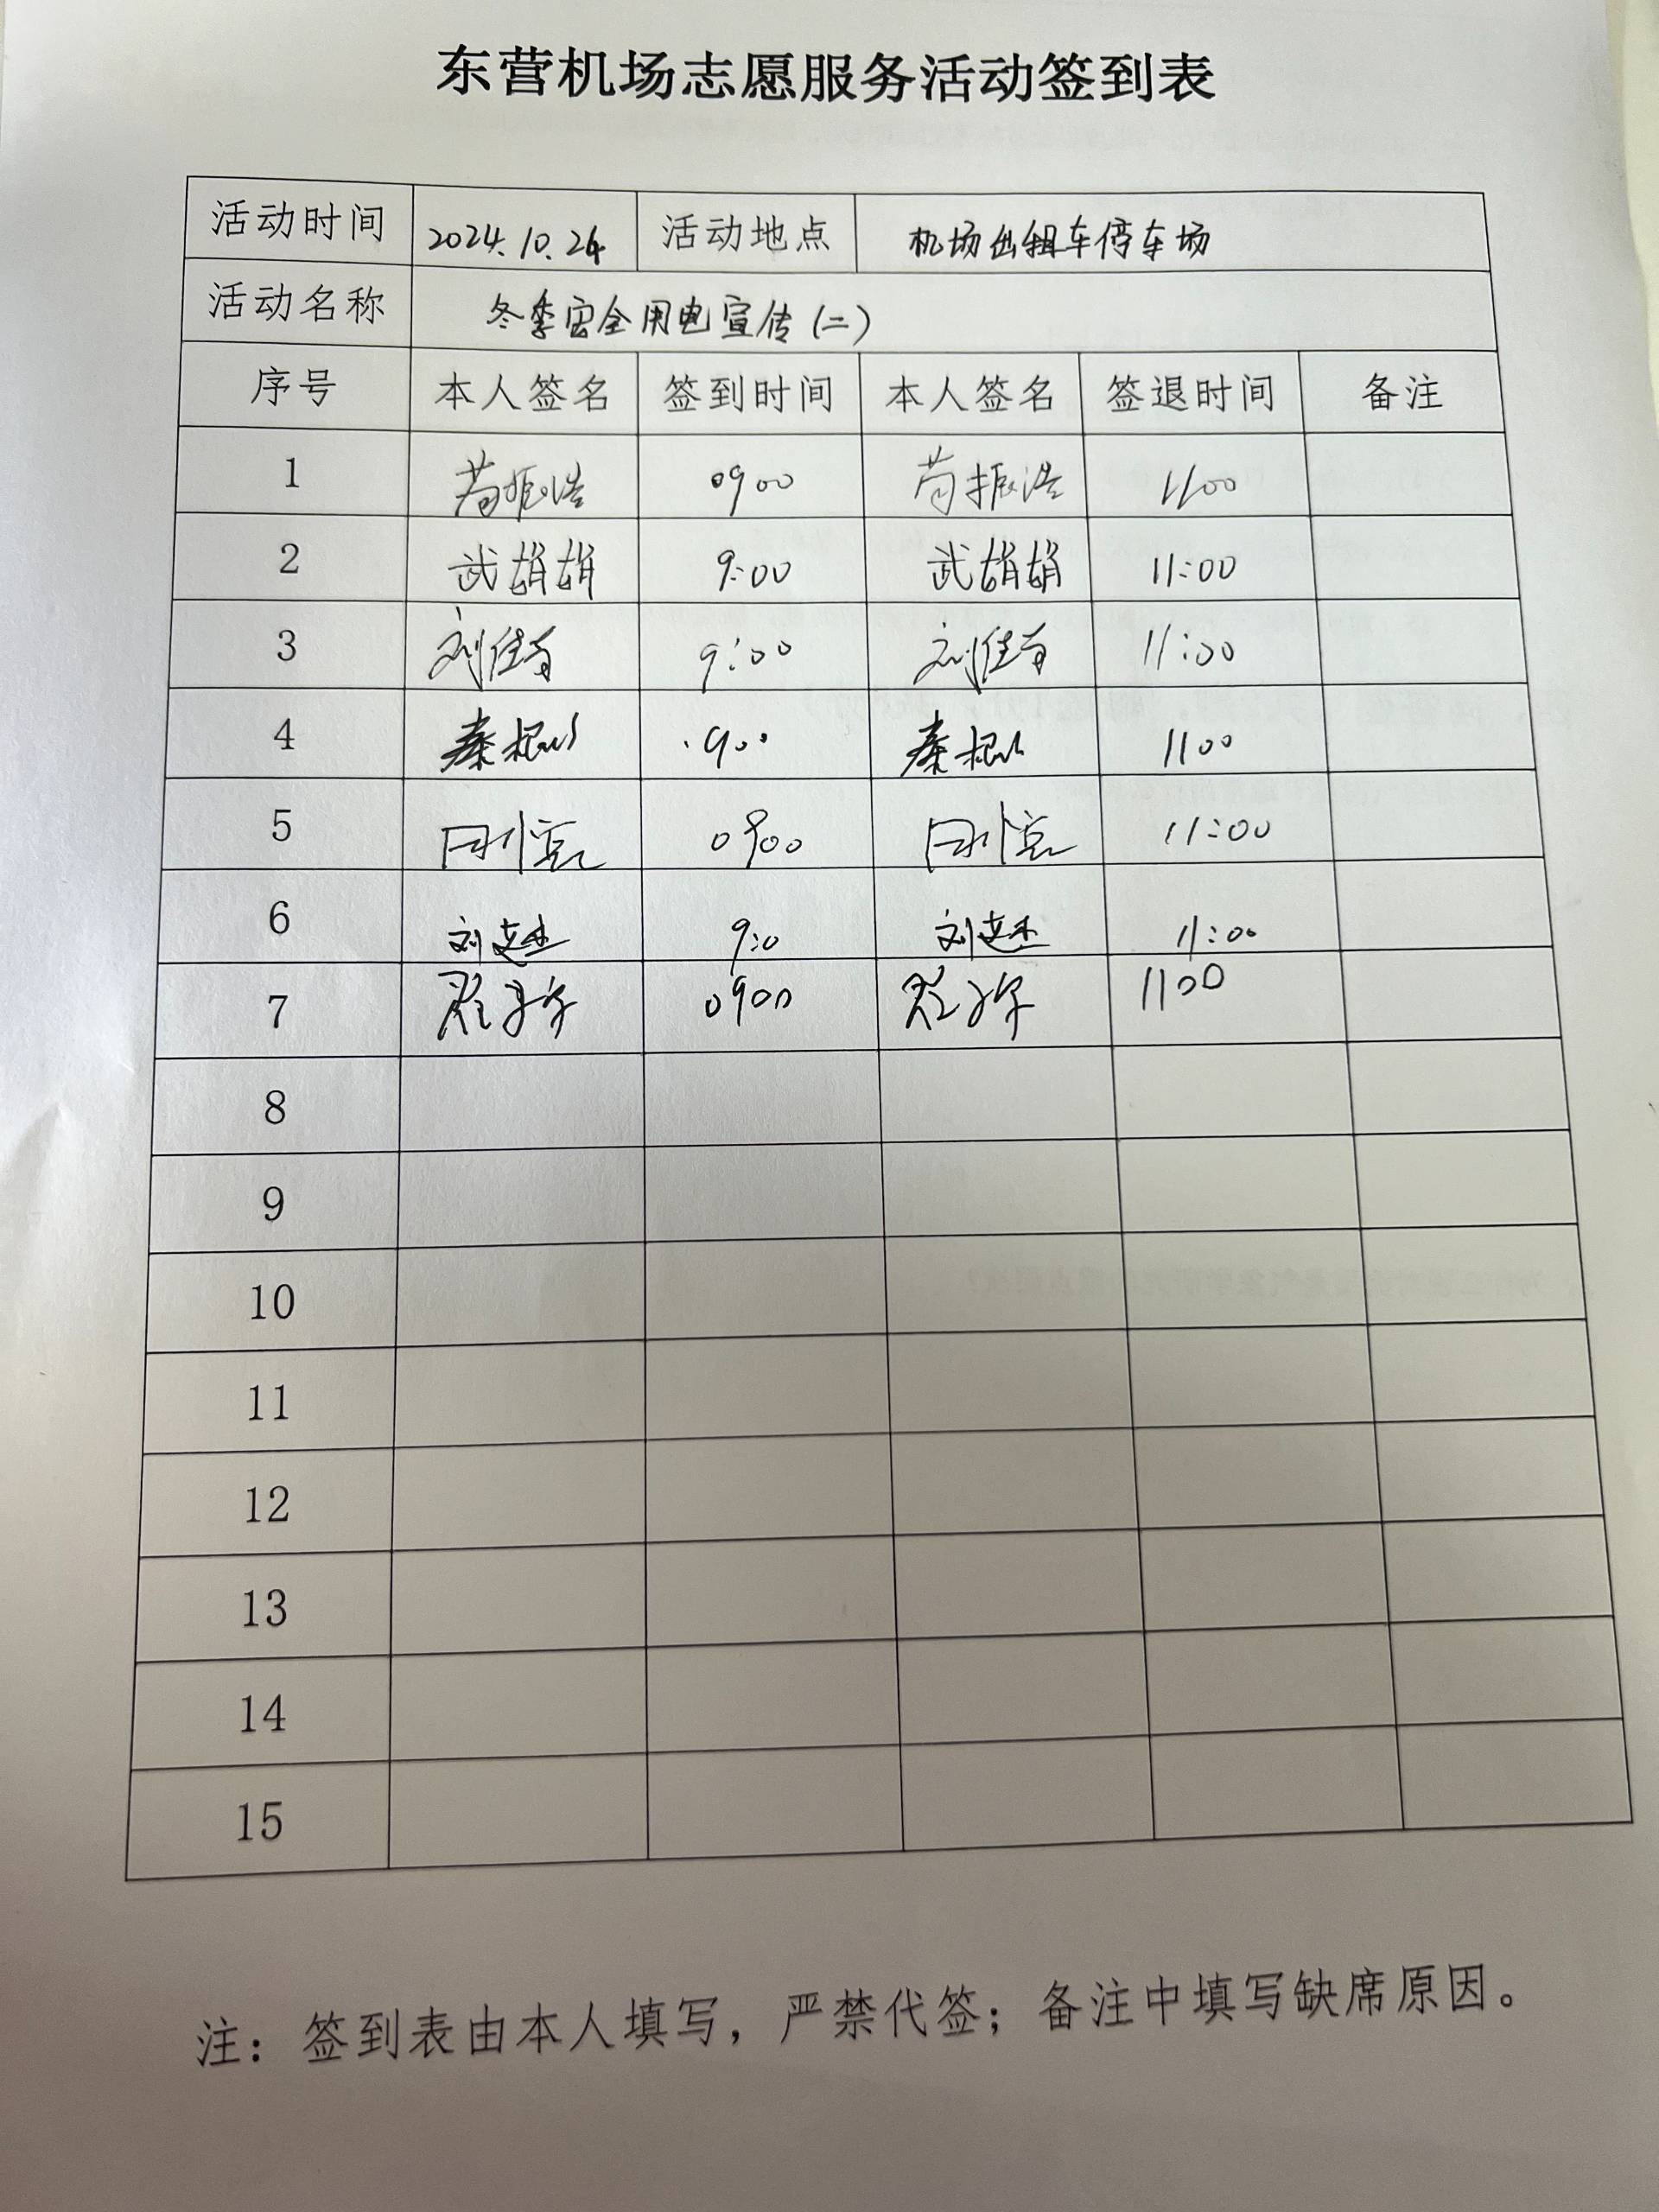 东营机场志愿服务活动签到表
活动时间 2024.10.24 活动地点 机场出租车停车场
活动名称 冬季安全用电宣传(二)
序号 本人签名 签到时间 本人签名 签退时间 备注
1 苟振浩 0900 苟振浩 1100
2 武娟娟 9:00 武娟娟 11:00
3 刘佳 9:00 刘佳 11:00
4 秦 900 秦 1100
5 0900 11:00
6 刘 9:0 刘 11:00
7 0900 1100
8
9
10
11
12
13
14
15
注：签到表由本人填写，严禁代签；备注中填写缺席原因。